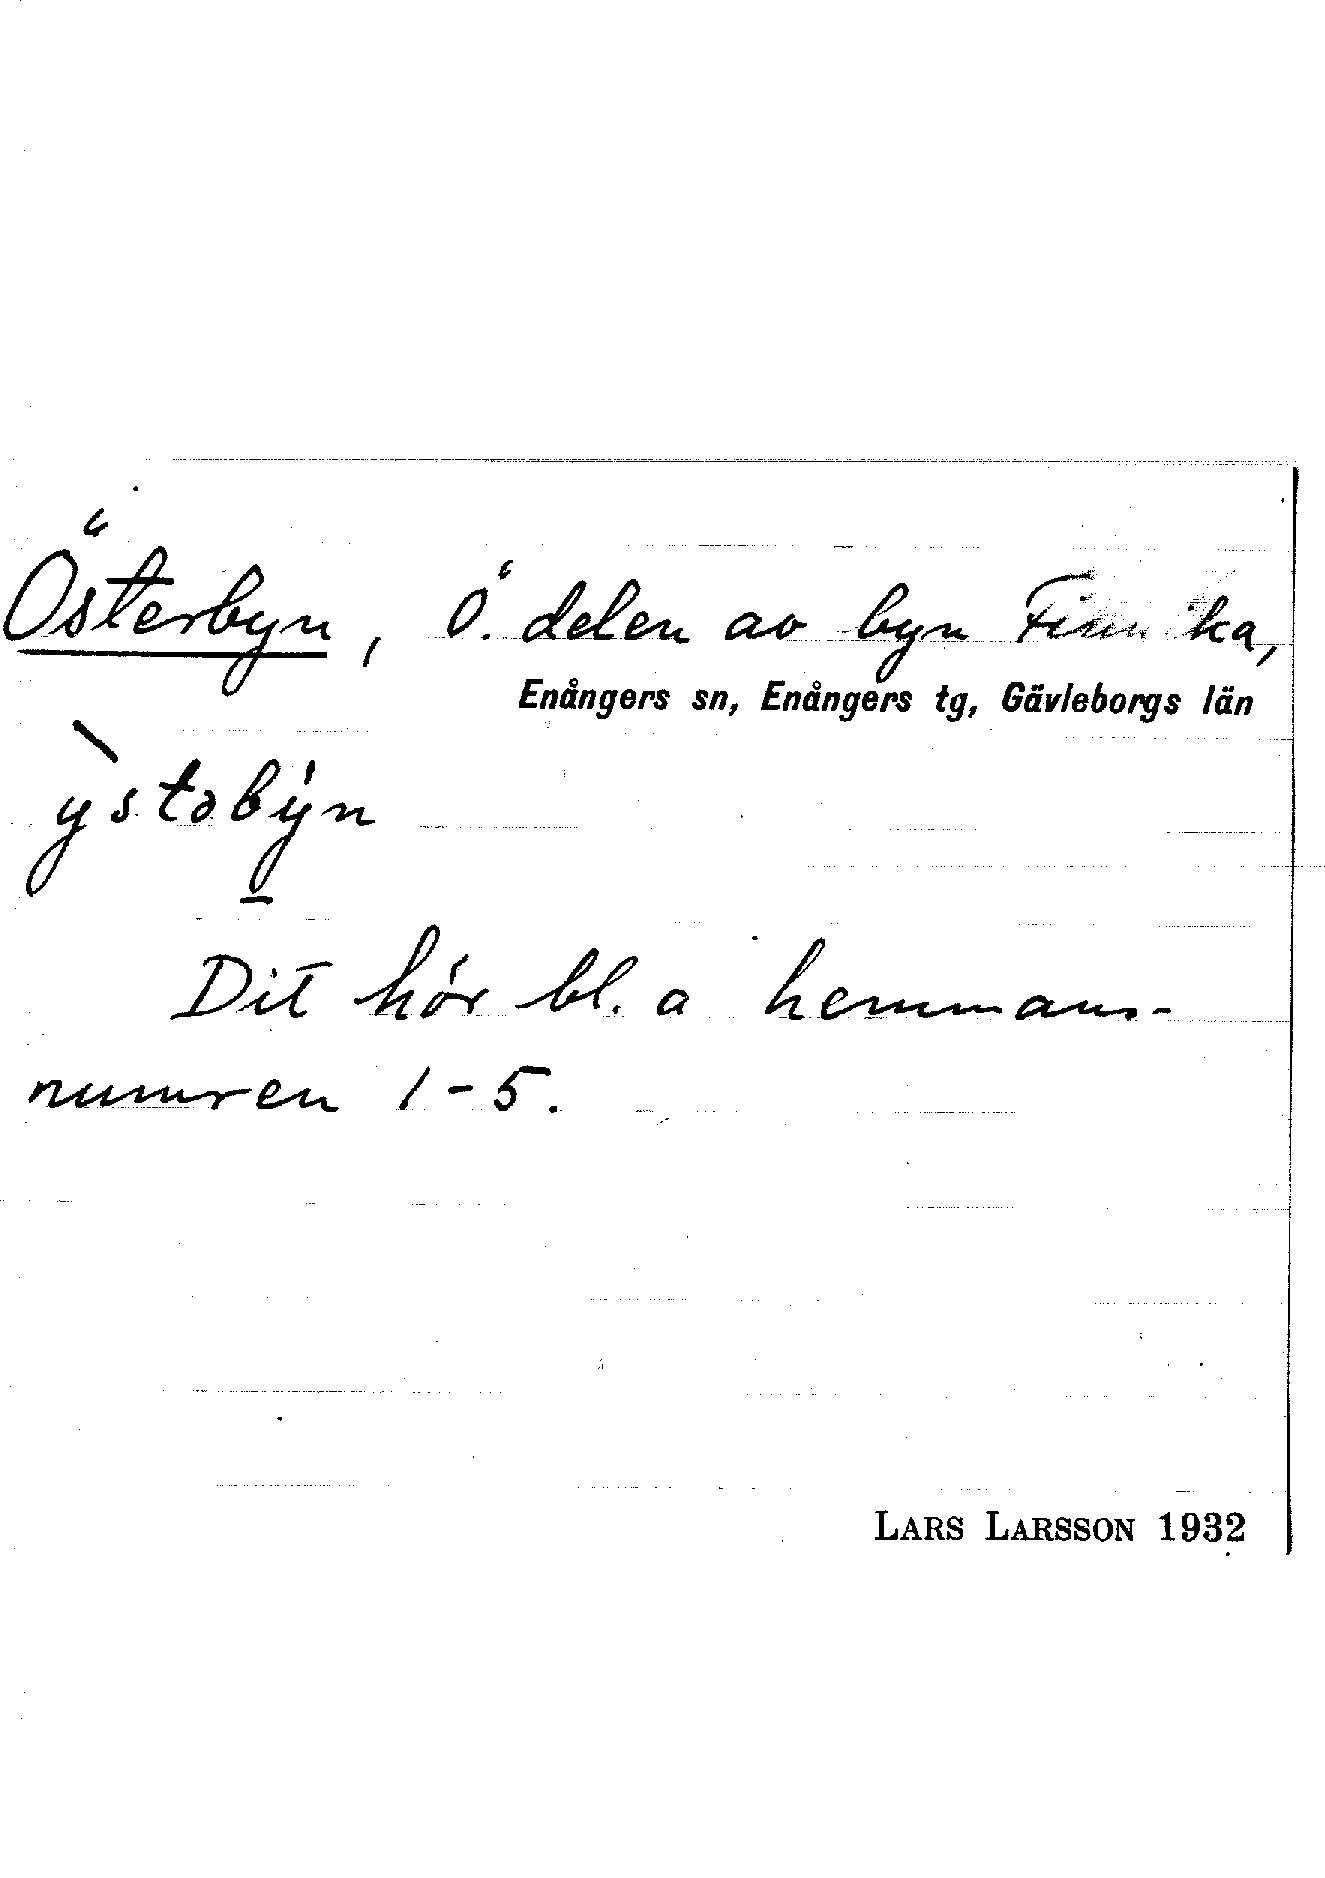 Österbyn, Ö. delen av byn
Enångers sn, Enångers tg, Gävleborgs län
ỳstəbýn
Dit hör bl. a hemmans-
numren 1-5.
LARS LARSSON 1932